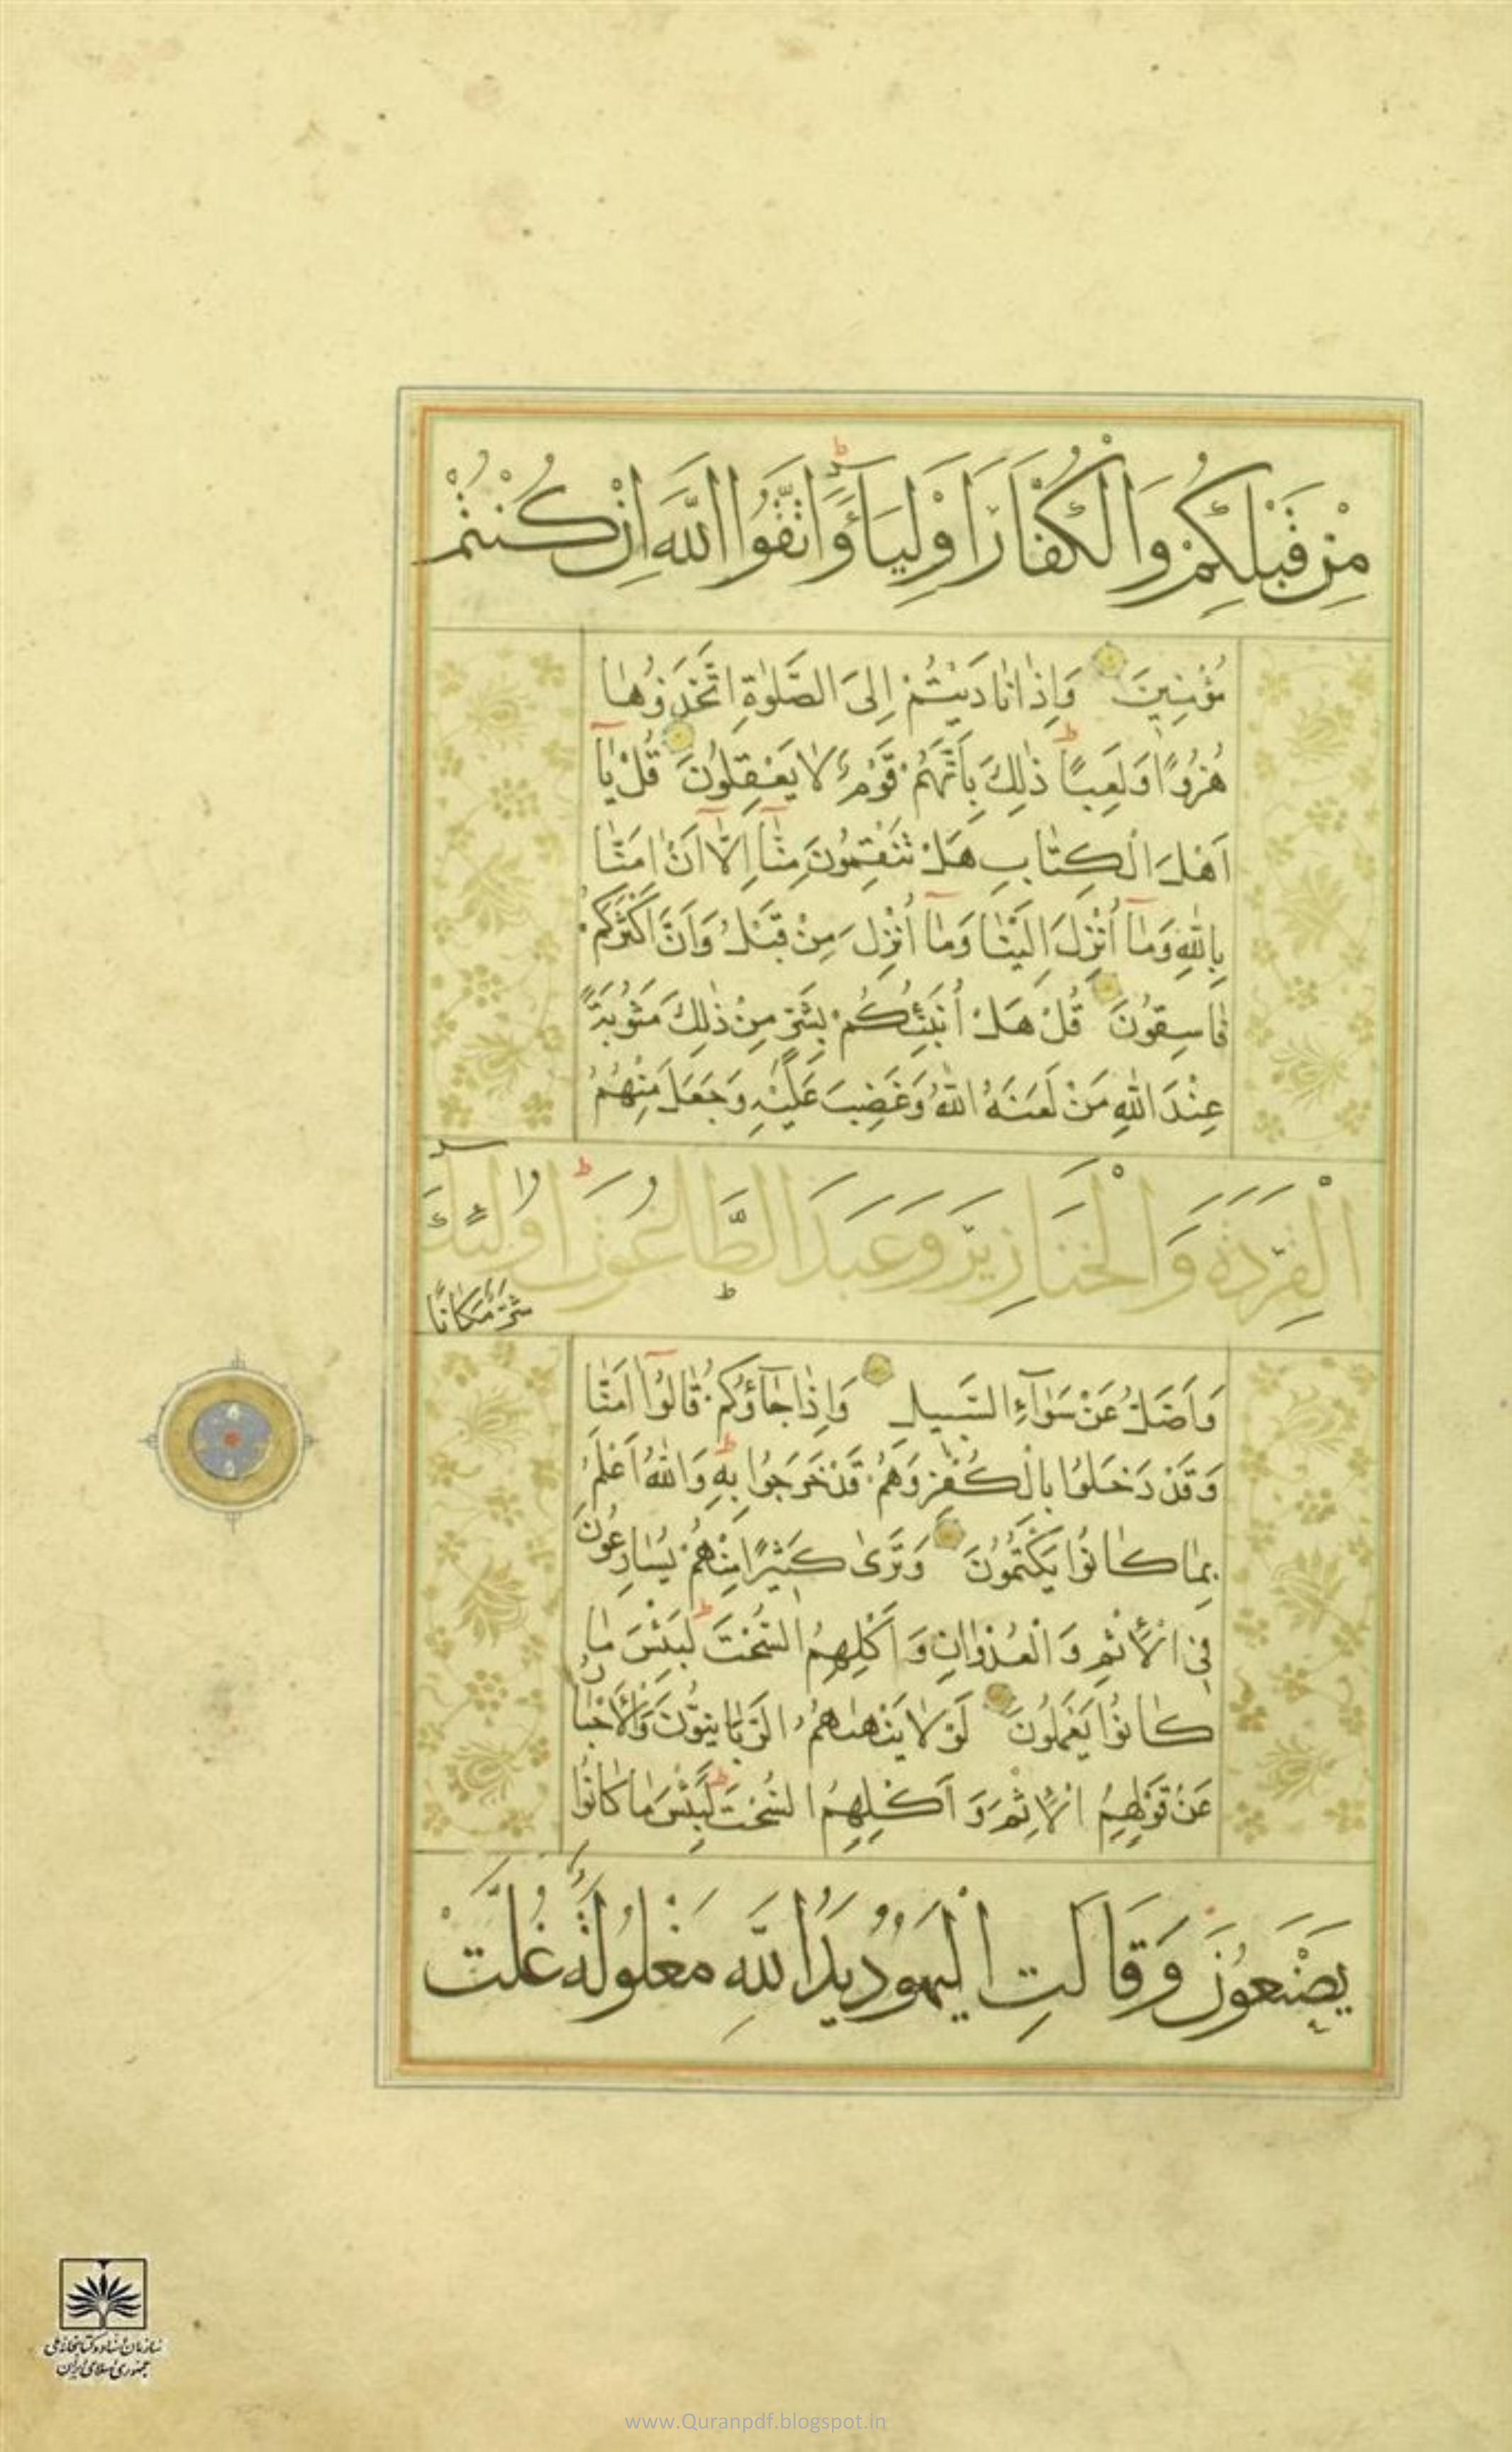 مِنْ قَبْلِكُمْ وَالْكُفَّارَ اَوْلِيَآءَ وَاتَّقُوا اللّٰهَ اِنْ كُنْتُمْ
مُؤْمِنِينَ وَاِذَا نَادَيْتُمْ اِلَى الصَّلٰوةِ اتَّخَذُوهَا
هُزُوًا وَلَعِبًا ذٰلِكَ بِاَنَّهُمْ قَوْمٌ لَا يَعْقِلُونَ قُلْ يَٓا
اَهْلَ الْكِتَابِ هَلْ تَنْقِمُونَ مِنَّٓا اِلَّٓا اَنْ اٰمَنَّا
بِاللّٰهِ وَمَٓا اُنْزِلَ اِلَيْنَا وَمَٓا اُنْزِلَ مِنْ قَبْلُ وَاَنَّ اَكْثَرَكُمْ
فَاسِقُونَ قُلْ هَلْ اُنَبِّئُكُمْ بِشَرٍّ مِنْ ذٰلِكَ مَثُوبَةً
عِنْدَ اللّٰهِ مَنْ لَعَنَهُ اللّٰهُ وَغَضِبَ عَلَيْهِ وَجَعَلَ مِنْهُمُ
الْقِرَدَةَ وَالْخَنَازِيرَ وَعَبَدَ الطَّاغُوتَ اُولٰٓئِكَ
شَرٌّ مَكَانًا
وَاَضَلُّ عَنْ سَوَآءِ السَّبِيلِ وَاِذَا جَآؤُكُمْ قَالُوٓا اٰمَنَّا
وَقَدْ دَخَلُوا بِالْكُفْرِ وَهُمْ قَدْ خَرَجُوا بِهِ وَاللّٰهُ اَعْلَمُ
بِمَا كَانُوا يَكْتُمُونَ وَتَرٰى كَثِيرًا مِنْهُمْ يُسَارِعُونَ
فِي الْاِثْمِ وَالْعُدْوَانِ وَاَكْلِهِمُ السُّحْتَ لَبِئْسَ مَا
كَانُوا يَعْمَلُونَ لَوْلَا يَنْهٰهُمُ الرَّبَّانِيُّونَ وَالْاَحْبَارُ
عَنْ قَوْلِهِمُ الْاِثْمَ وَاَكْلِهِمُ السُّحْتَ لَبِئْسَ مَا كَانُوا
يَصْنَعُونَ وَقَالَتِ الْيَهُودُ يَدُ اللّٰهِ مَغْلُولَةٌ غُلَّتْ
سازمان اسناد و کتابخانه ملی
جمهوری اسلامی ایران
www.Quranpdf.blogspot.in